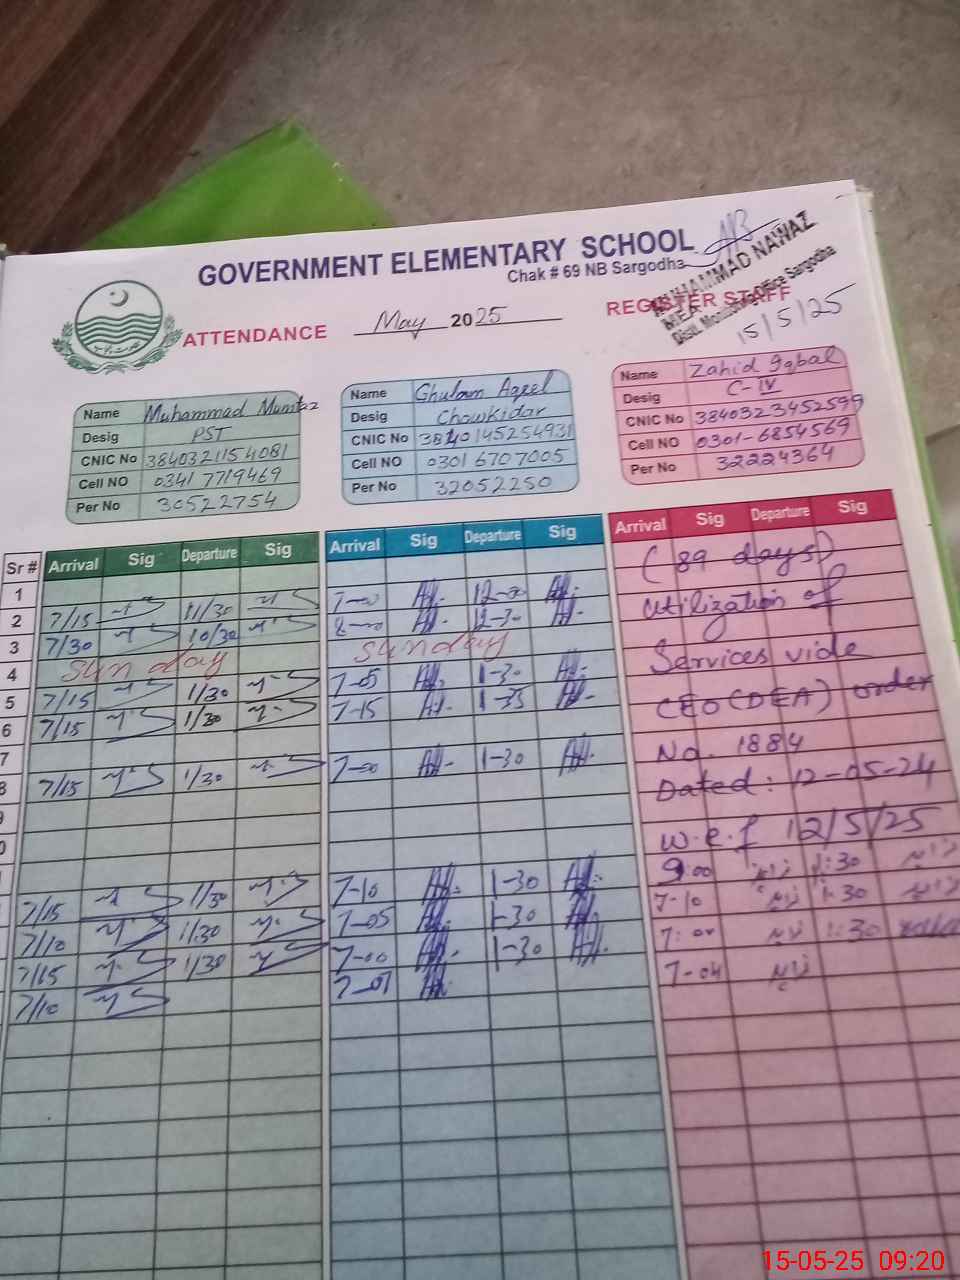 GOVERNMENT ELEMENTARY SCHOOL
Chak # 69 NB Sargodha
MUHAMMAD NAWAZ
MEA
Distt. Monitoring Office Sargodha
15/5/25
ATTENDANCE May 2025 REGISTER STAFF
Name Muhammad Mumtaz
Desig PST
CNIC No 3840321154081
Cell NO 0341 7719469
Per No 30522754
Name Ghulam Aqeel
Desig Chowkidar
CNIC No 3840145254931
Cell NO 0301 6707005
Per No 32052250
Name Zahid Iqbal
Desig C-IV
CNIC No 3840323452599
Cell NO 0301-6854569
Per No 32224364
Sr # Arrival Sig Departure Sig Arrival Sig Departure Sig Arrival Sig Departure Sig
1
2
3
4
5
6
7
7/15 11/30
7/30 10/30
Sunday
7/15 1/30
7/15 1/30
7/15 1/30
7/15 1/30
7/10 1/30
7/15 1/30
7/10
7-00 12-00
8-00 12-30
Sunday
7-05 1-30
7-15 1-35
7-00 1-30
7-10 1-30
7-05 1-30
7-00 1-30
7-07
(89 days)
Utilization of
Services vide
CEO (DEA) order
No. 1884
Dated: 12-05-24
w.e.f 12/5/25
9:00 1:30
7-10 1-30
7:00 1:30
7-04
15-05-25 09:20